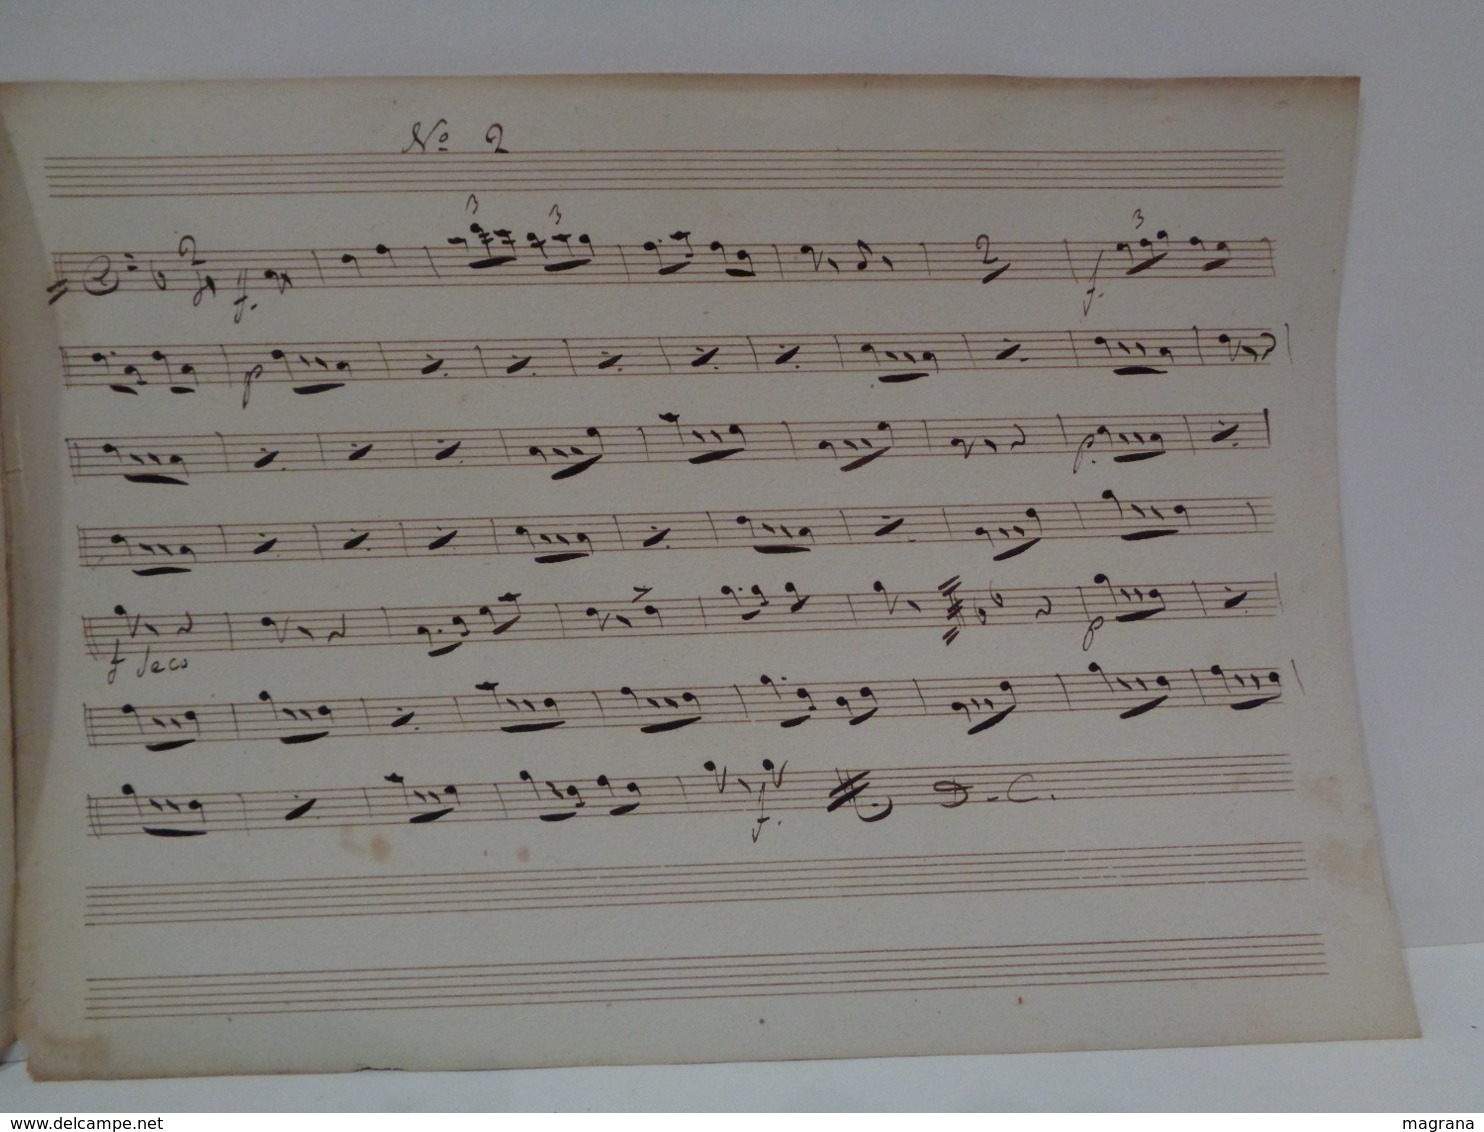 Nº 2
3 3 3
2
f. 2 f.
p
p.
f Seco p
f. D. C.
www.delcampe.net
magrana